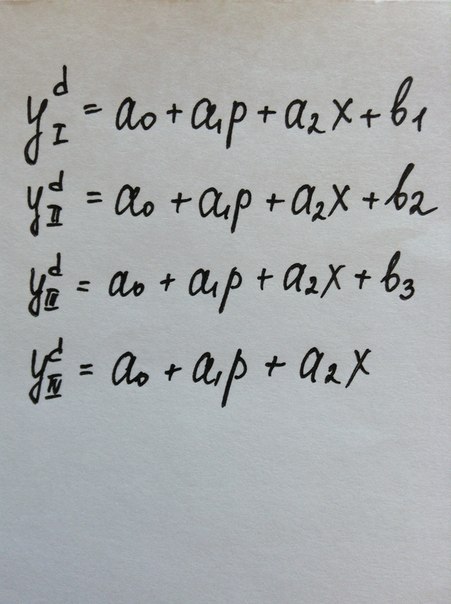 y_I^d = a_0 + a_1 p + a_2 x + b_1
y_II^d = a_0 + a_1 p + a_2 x + b_2
y_III^d = a_0 + a_1 p + a_2 x + b_3
y_IV^d = a_0 + a_1 p + a_2 x